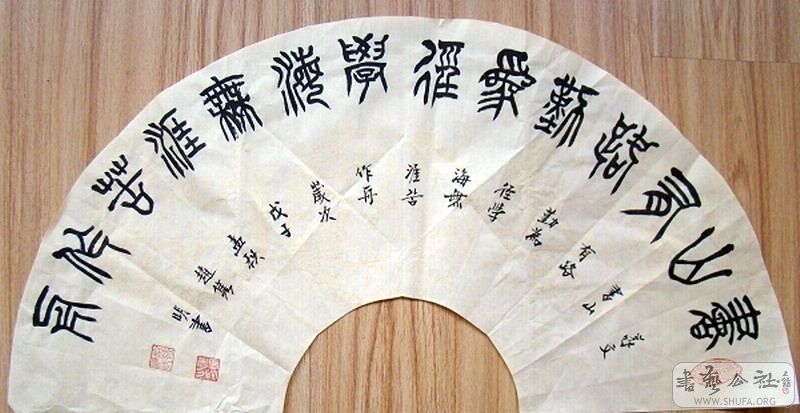 書山有路勤為徑學海無涯苦作舟
釋文
書山
有路
勤為
徑學
海無
涯苦
作舟
歲次
戊子
孟秋
趙
明書
書藝公社
WWW.SHUFA.ORG